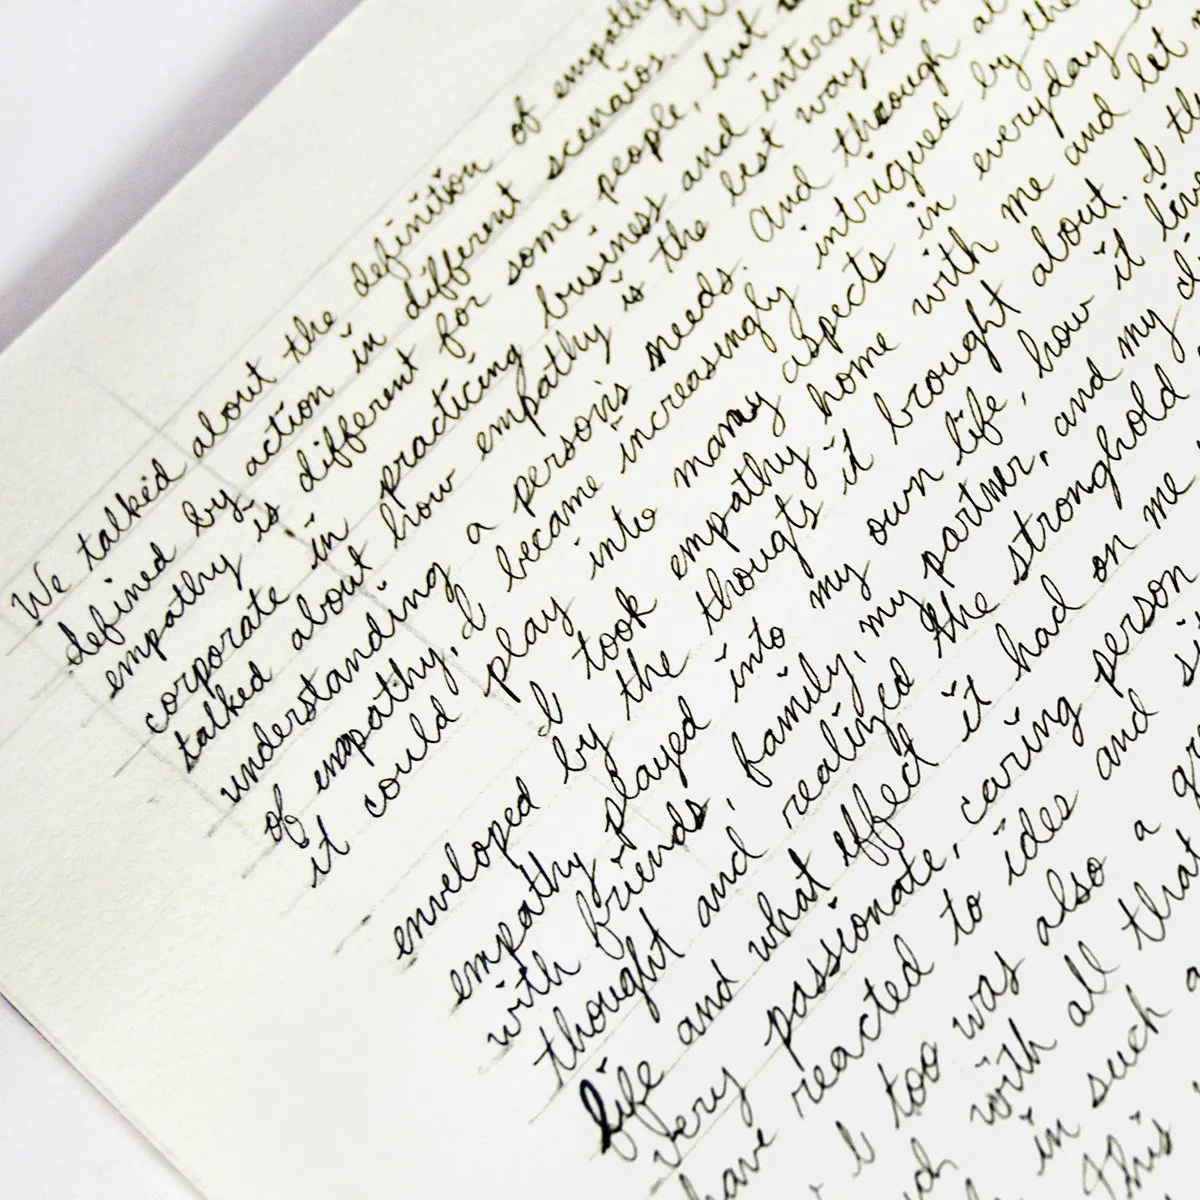 We talked about the definition of empathy
defined by action in different scenarios. W
empathy is different for some people, but
corporate in practicing business and interac
talked about how empathy is the best way to
understanding a person's needs. And through al
of empathy, I became increasingly intrigued by the
it could play into many aspects in everyday
I took empathy home with me and let
enveloped by the thoughts it brought about. I th
empathy played into my own life, how it live
with friends, family, my partner, and my
thought and realized the stronghold
life and what effect it had on me
very passionate, caring person
have reacted to ides and si
I too was also a gr
with all that
in such a
This